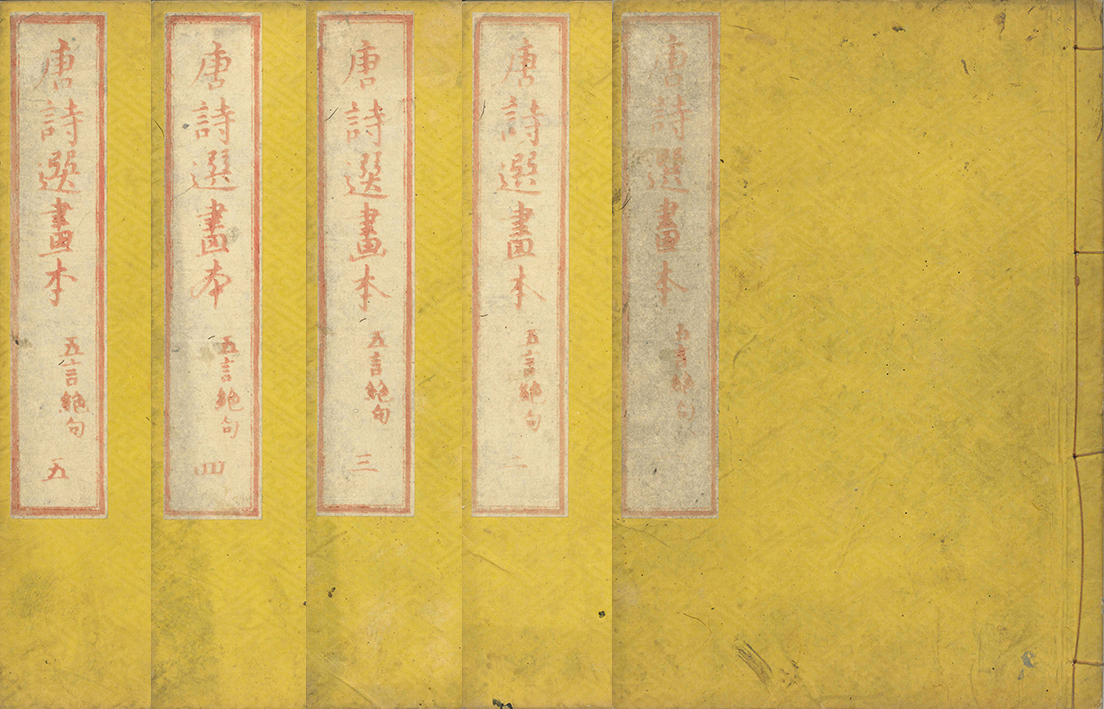 唐詩選畫本 五言絶句
唐詩選畫本 五言絶句 二
唐詩選畫本 五言絶句 三
唐詩選畫本 五言絶句 四
唐詩選畫本 五言絶句 五